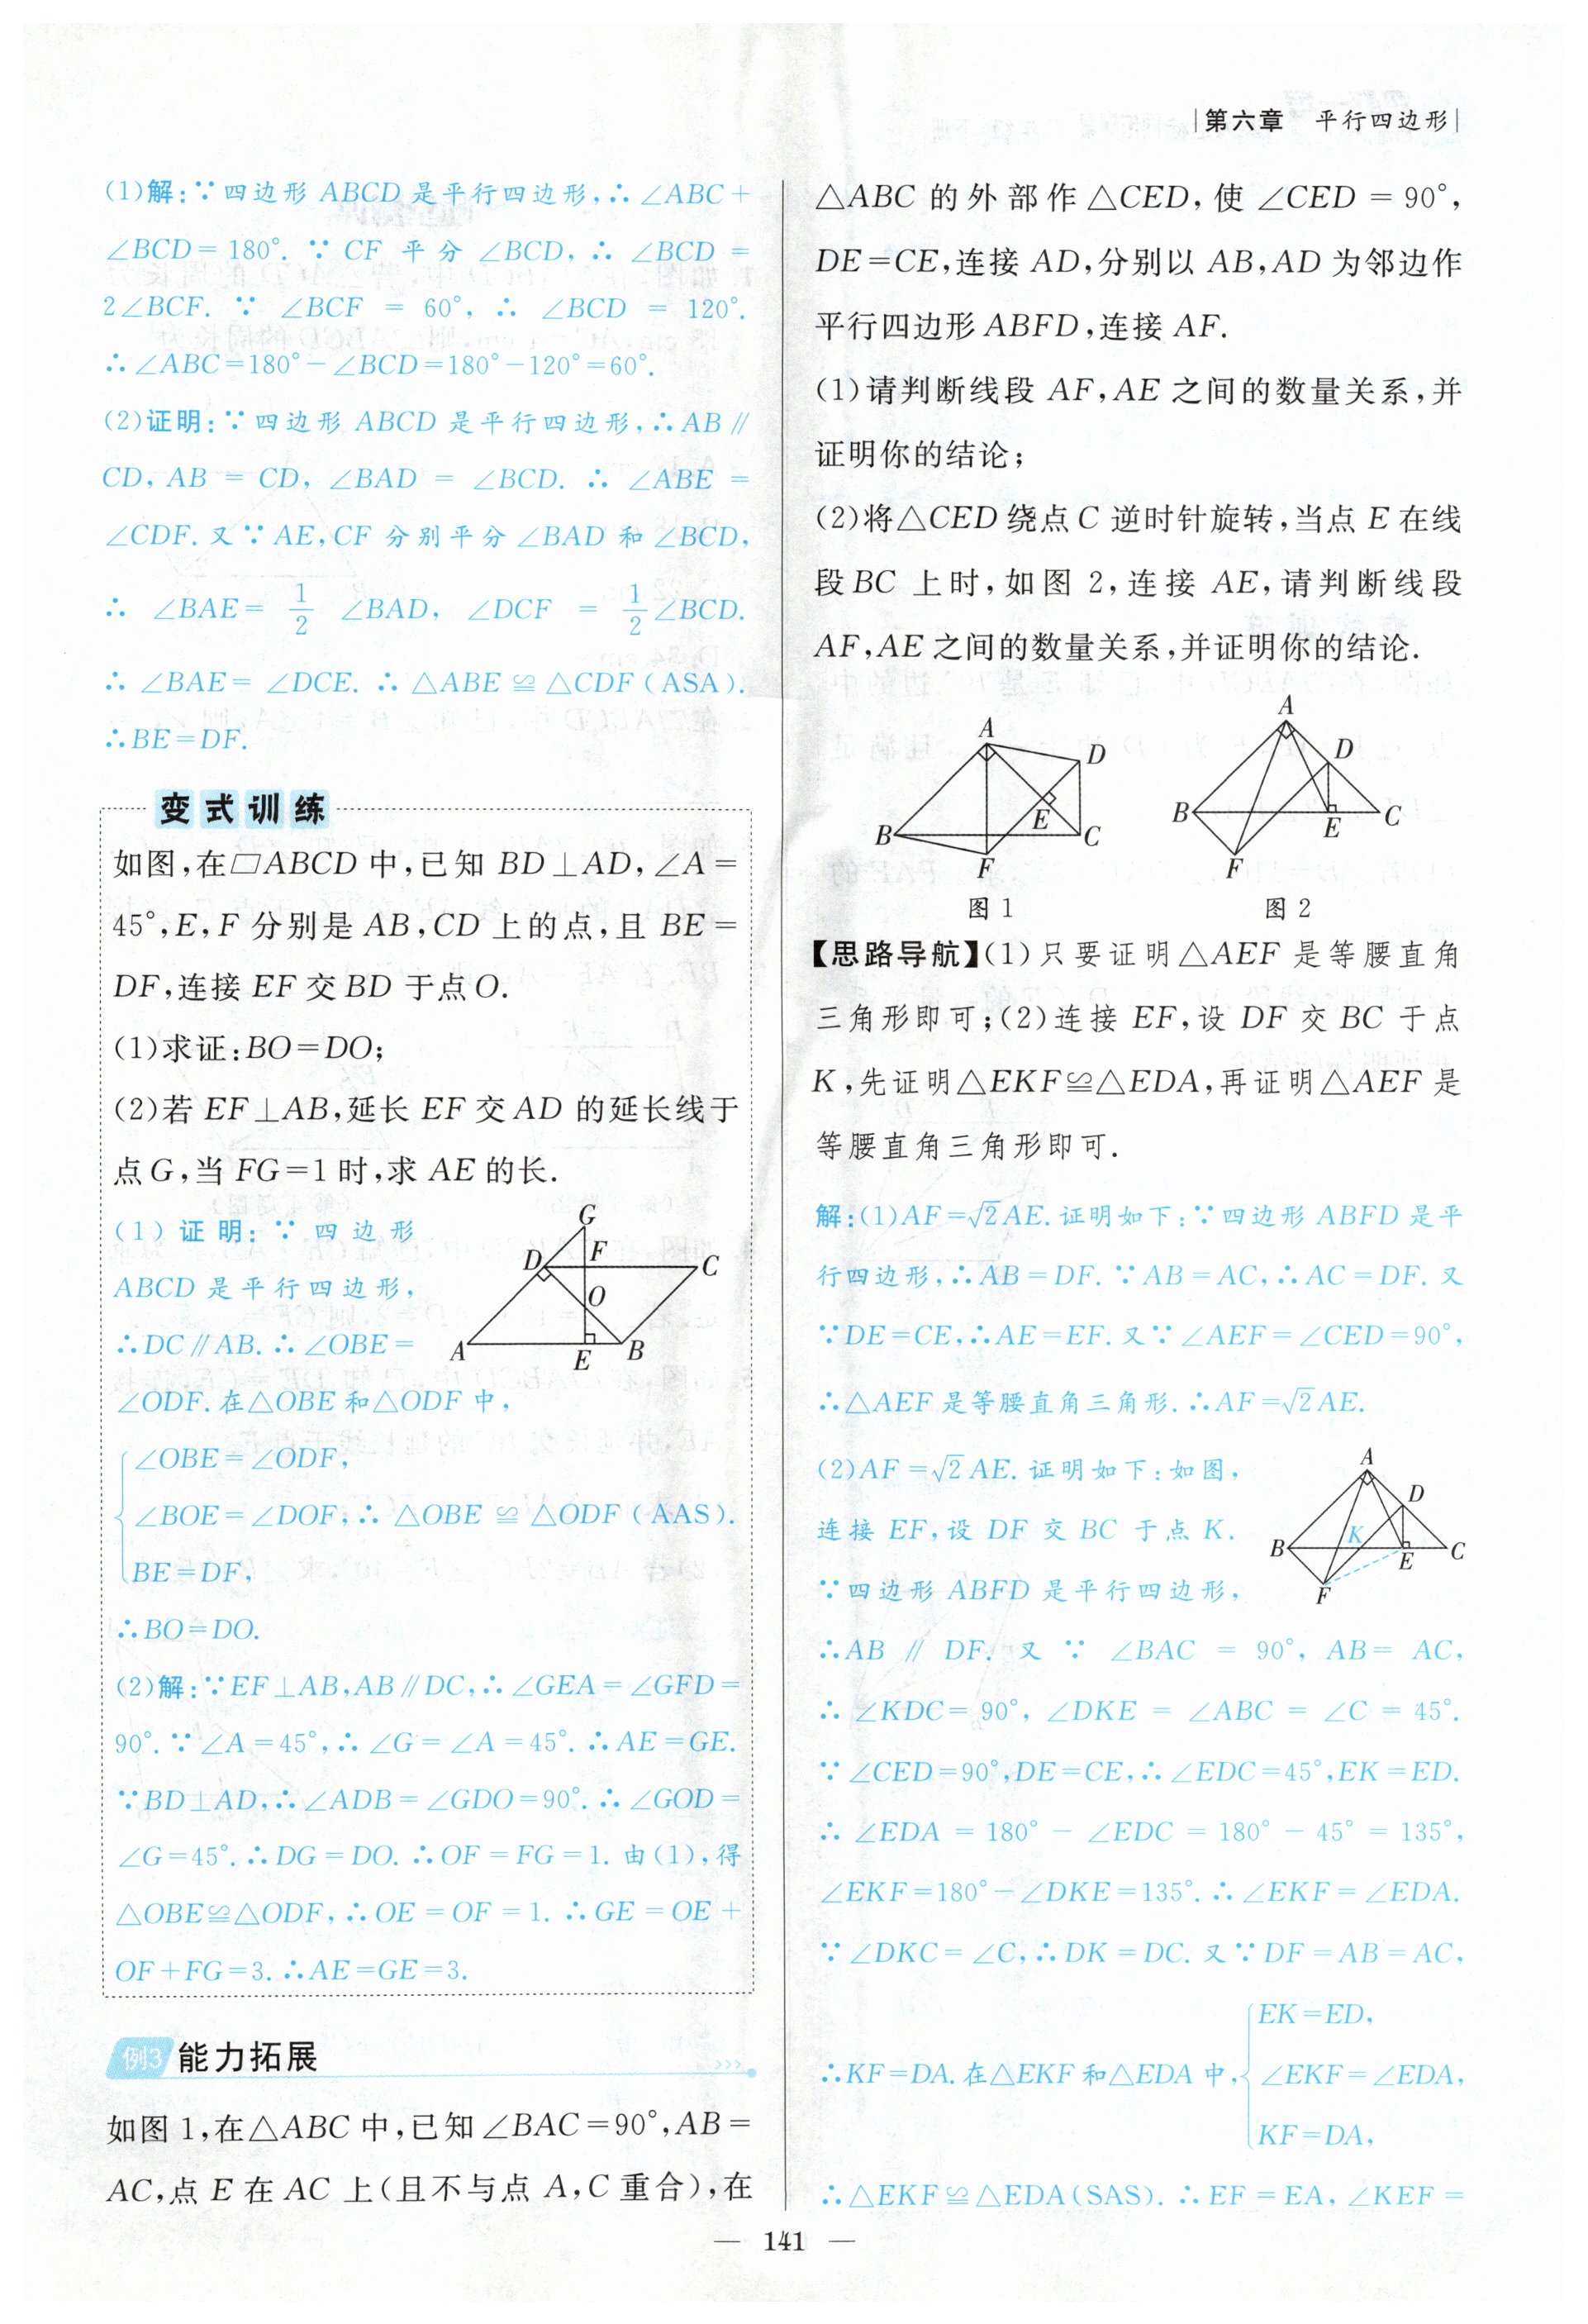 第六章 平行四边形
(1)解:∵四边形 ABCD 是平行四边形,∴∠ABC+
∠BCD=180°. ∵ CF 平分 ∠BCD,∴ ∠BCD =
2∠BCF. ∵ ∠BCF = 60°,∴ ∠BCD = 120°.
∴∠ABC=180°-∠BCD=180°-120°=60°.
(2)证明:∵四边形 ABCD 是平行四边形,∴AB∥
CD, AB = CD, ∠BAD = ∠BCD. ∴ ∠ABE =
∠CDF. 又∵AE,CF 分别平分∠BAD 和∠BCD,
∴ ∠BAE= 1/2 ∠BAD, ∠DCF = 1/2∠BCD.
∴ ∠BAE= ∠DCE. ∴ △ABE≌△CDF(ASA).
∴BE=DF.
变式训练
如图,在▱ABCD 中,已知 BD⊥AD,∠A=
45°,E,F 分别是 AB,CD 上的点,且 BE=
DF,连接 EF 交 BD 于点O.
(1)求证:BO=DO;
(2)若 EF⊥AB,延长 EF 交 AD 的延长线于
点G,当 FG=1 时,求 AE 的长.
(1)证明:∵四边形
ABCD 是平行四边形,
∴DC∥AB. ∴∠OBE=
∠ODF. 在△OBE 和△ODF 中,
∠OBE=∠ODF,
∠BOE=∠DOF,∴ △OBE ≌ △ODF(AAS).
BE=DF,
∴BO=DO.
G
D
F
C
O
A
E
B
(2)解:∵EF⊥AB,AB∥DC,∴∠GEA=∠GFD=
90°. ∵∠A=45°,∴∠G=∠A=45°. ∴AE=GE.
∵BD⊥AD,∴∠ADB=∠GDO=90°. ∴∠GOD=
∠G=45°. ∴DG=DO. ∴OF=FG=1. 由(1),得
△OBE≌△ODF,∴OE=OF=1. ∴GE=OE+
OF+FG=3. ∴AE=GE=3.
例3 能力拓展
如图 1,在△ABC 中,已知∠BAC=90°,AB=
AC,点 E 在 AC 上(且不与点 A,C 重合),在
△ABC 的外部作△CED,使∠CED = 90°,
DE=CE,连接 AD,分别以 AB,AD 为邻边作
平行四边形 ABFD,连接 AF.
(1)请判断线段 AF,AE 之间的数量关系,并
证明你的结论;
(2)将△CED 绕点 C 逆时针旋转,当点 E 在线
段BC 上时,如图 2,连接 AE,请判断线段
AF,AE 之间的数量关系,并证明你的结论.
A
D
B
E
C
F
图 1
A
D
B
E
C
F
图 2
【思路导航】(1)只要证明△AEF 是等腰直角
三角形即可;(2)连接 EF,设 DF 交 BC 于点
K,先证明△EKF≌△EDA,再证明△AEF 是
等腰直角三角形即可.
解:(1)AF=√2AE. 证明如下:∵四边形 ABFD 是平
行四边形,∴AB=DF. ∵AB=AC,∴AC=DF. 又
∵DE=CE,∴AE=EF. 又∵∠AEF=∠CED=90°,
∴△AEF 是等腰直角三角形. ∴AF=√2AE.
(2)AF=√2AE. 证明如下:如图,
连接 EF,设 DF 交 BC 于点 K.
∵四边形 ABFD 是平行四边形,
A
D
B
K
E
C
F
∴AB ∥ DF. 又 ∵ ∠BAC = 90°, AB= AC,
∴ ∠KDC= 90°, ∠DKE = ∠ABC = ∠C = 45°.
∵∠CED=90°,DE=CE,∴∠EDC=45°,EK=ED.
∴ ∠EDA = 180° - ∠EDC = 180° - 45° = 135°,
∠EKF=180°-∠DKE=135°. ∴∠EKF=∠EDA.
∵∠DKC=∠C,∴DK=DC. 又∵DF=AB=AC,
∴KF=DA. 在△EKF 和△EDA 中,
EK=ED,
∠EKF=∠EDA,
KF=DA,
∴△EKF≌△EDA(SAS). ∴EF=EA,∠KEF=
— 141 —